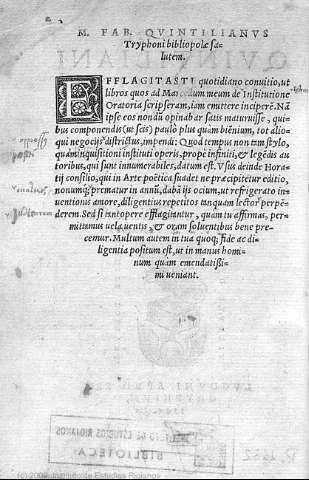 M. FAB. QVINTILIANVS
Tryphoni bibliopolæ sa-
lutem.
EFFLAGITASTI quotidiano conuitio, ut
libros quos ad Marcellum meum de Institutione
Oratoria scripseram, iam emittere inciperē. Nā
ipse eos nondū opinabar satis maturuisse, qui-
bus componendis (ut scis) paulò plus quàm biēnium, tot alio-
qui negocijs districtus, impendi: Quod tempus non tam stylo,
quàm inquisitioni instituti operis, propè infiniti, & legēdis au
toribus, qui sunt innumerabiles, datum est. Vsus deinde Hora-
tij consilio, qui in Arte poëtica suadet ne præcipitetur editio,
nonumq; prematur in annū, dabā ijs ocium, ut refrigerato in-
uentionis amore, diligentius repetitos tanquam lector perpē-
derem. Sed si tantopere efflagitantur, quàm tu affirmas, per-
mittamus uela uentis, & oram soluentibus bene pre-
cemur. Multum autem in tua quoq; fide ac di-
ligentia positum est, ut in manus homi-
num quàm emendatissi-
mi ueniant.
INSTITUTO DE ESTUDIOS RIOJANOS
BIBLIOTECA
(c) 2009 Instituto de Estudios Riojanos